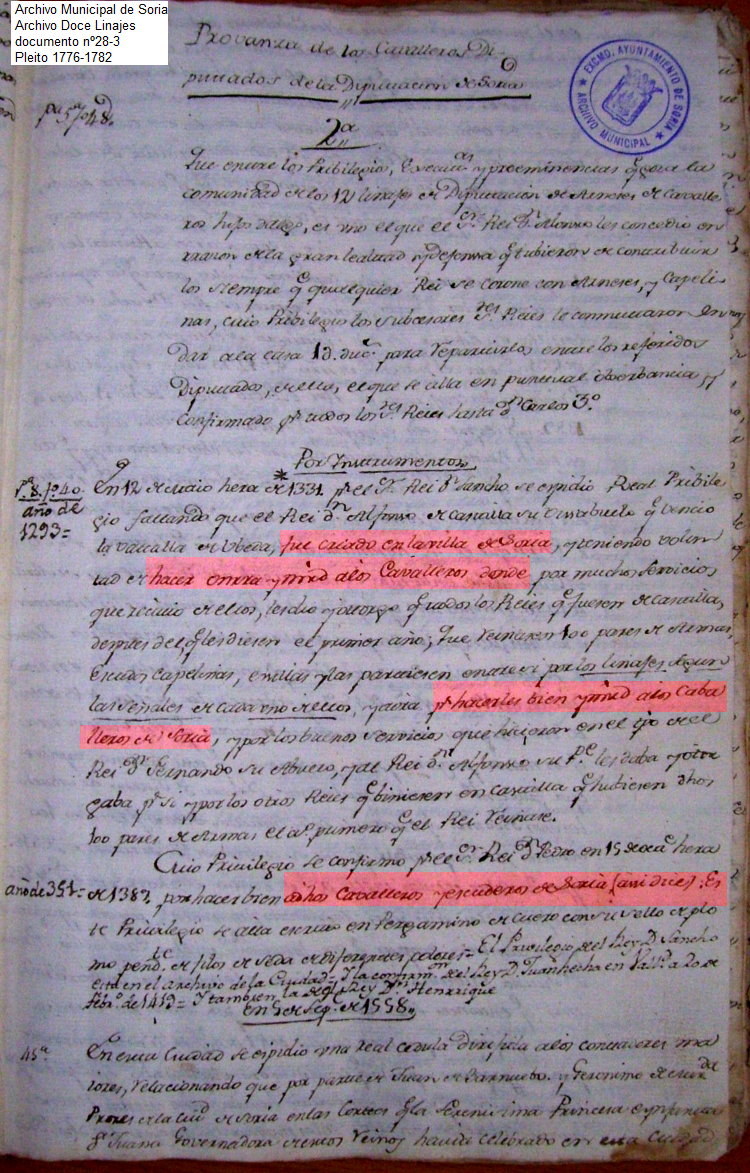 Archivo Municipal de Soria
Archivo Doce Linajes
documento nº28-3
Pleito 1776-1782
EXCMO. AYUNTAMIENTO DE SORIA
ARCHIVO MUNICIPAL
Provanza de los Cavalleros Di
putados de la Diputacion de Soria
2ª
Que entre los Pribilegios, y preeminencias q goza la
comunidad de los 12 linajes de Diputacion de Arneses de Cavalle
ros hijos dalgo, es uno el que el Sr. Rei Dn Alonso les concedio en
razon de la gran lealtad y defensa q tubieron de contribuir
los siempre q qualquier Rei se Corone con Arneses, y Capeli
nas, cuio Pribilegio los Subcesores Sres Reies le conmutaron en
dar a la casa 1d. ducs para repartirlos entre los referidos
Diputados, el que se alla en puntual obserbancia y
confirmado pr todos los Sres Reies hasta Dn Carlos 3º
Por Instrumentos
Pª 8. fº 40
año de
1293=
En 12 de Maio hera de *1331 pr el Sr Rei Dn Sancho se espidio Real Pribile
gio que el Rei Dn Alfonso de Castilla su Visabuelo q vencio
la vatalla de Ubeda, fue criado en la villa de Soria, y teniendo volun
tad de hacer onrra y mrd a los Cavalleros donde por muchos servicios
que recivio de ellos, les dio y otorgo q todos los Reies q fueron de Castilla,
despues del q les diesen el primer año, que reinaren 100 pares de Armas,
Escudos capelinas, e sillas y las partiesen entre si por los linajes segun
las señales de cada uno de ellos, y aora pr hacerles bien y mrd a los Caba
lleros de Soria, y por los buenos servicios que hicieron en el tpo de el
Rei Dn Fernando su Abuelo, y de Rei Dn Alfonso su Pe les daba y otor
gaba pr si y por los otros Reies q biniesen en Castilla q hubiesen dhos
100 pares de Armas el año primero q el Rei Reinare.
Cuio Privilegio se confirmo pr el Sr Rei Dn Pedro en 15 de hera
año de 351= de 1387 por hacer bien a dhos Cavalleros y escuderos de Soria (asi dice). Es
te Privilegio se alla escrito en Pergamino de cuero con su sello de plo
mo pendte de filos de seda de diferentes colores= El Privilegio del Rey D. Sancho
esta en el archivo de la Ciudad= Y la confirmon del Rey D. Juan hecha en Valld a 20 de
febrº de 1413= Y tambien la del Rey Dn Henrique
en 5 de Sep. de 1558
45ª
En esta Ciudad se espidio una real cedula dirijida a los contadores ma
iores, relacionando que por parte de Juan de Barnuebo y Geronimo de
Prores de la Ciud de Soria en las Cortes q la Serenisima Princesa e ynfanta
Dª Juana Governadora de estos reinos havia celebrado en esta Ciudad